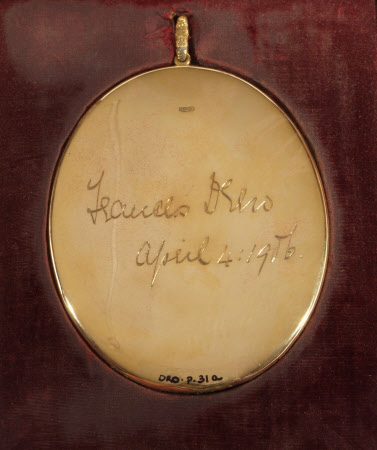 Frances Drew
April 4: 1916.
DRO.P.31a